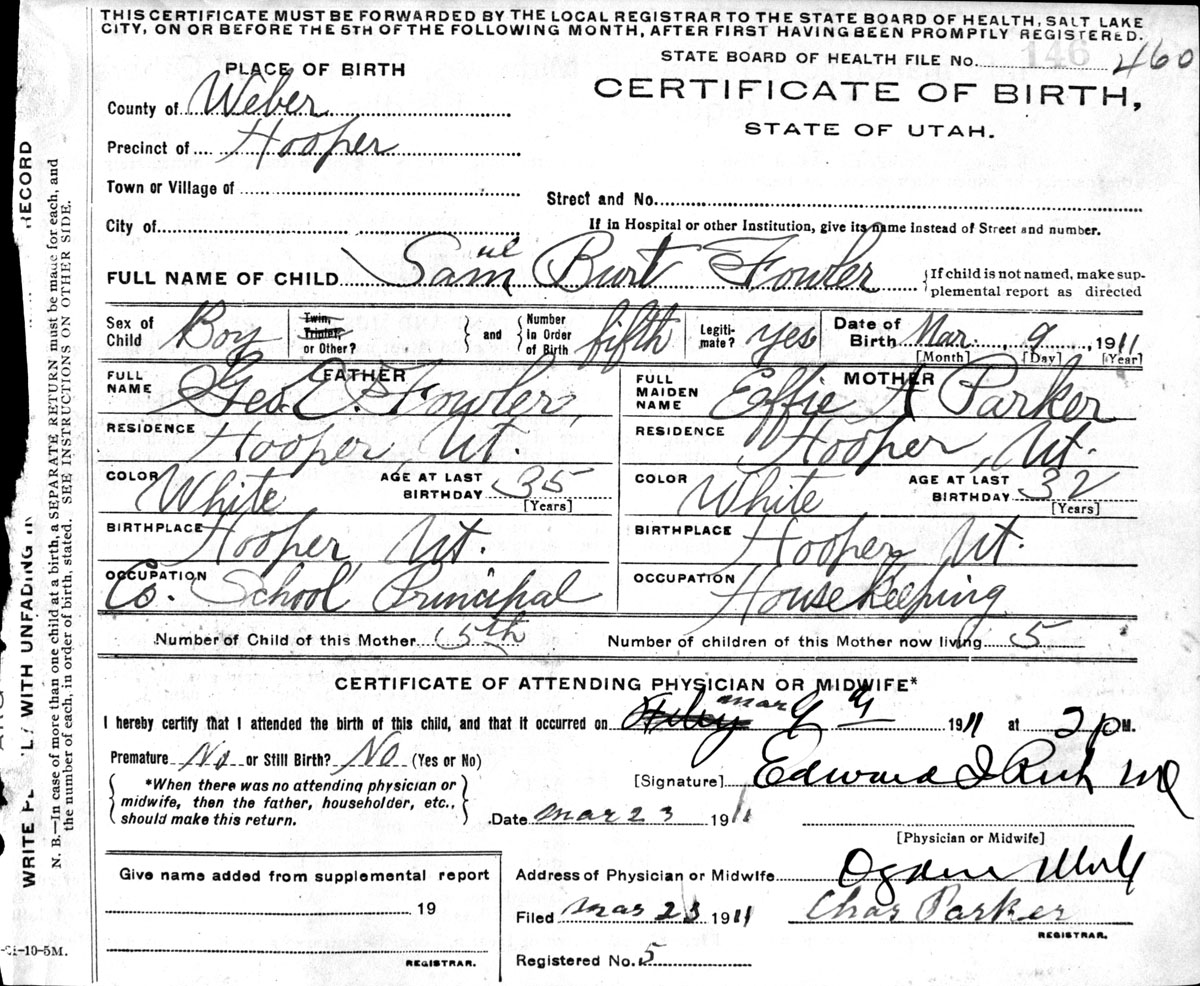 THIS CERTIFICATE MUST BE FORWARDED BY THE LOCAL REGISTRAR TO THE STATE BOARD OF HEALTH, SALT LAKE
CITY, ON OR BEFORE THE 5TH OF THE FOLLOWING MONTH, AFTER FIRST HAVING BEEN PROMPTLY REGISTERED.
STATE BOARD OF HEALTH FILE No. 146 460
PLACE OF BIRTH
CERTIFICATE OF BIRTH,
STATE OF UTAH.
County of Weber
Precinct of Hooper
Town or Village of
Street and No.
City of
If in Hospital or other Institution, give its name instead of Street and number.
FULL NAME OF CHILD Samuel Burt Fowler
If child is not named, make sup-
plemental report as directed
Sex of Child Boy
Twin, Triplet, or Other?
and
Number In Order of Birth fifth
Legiti-mate? yes
Date of Birth Mar. 9, 1911
[Month] [Day] [Year]
FATHER
FULL NAME Geo. E. Fowler
RESIDENCE Hooper, Ut.
COLOR White
AGE AT LAST BIRTHDAY 35
[Years]
BIRTHPLACE Hooper, Ut.
OCCUPATION Co. School Principal
MOTHER
FULL MAIDEN NAME Effie A Parker
RESIDENCE Hooper, Ut.
COLOR White
AGE AT LAST BIRTHDAY 32
[Years]
BIRTHPLACE Hooper Ut.
OCCUPATION Housekeeping
Number of Child of this Mother 5th
Number of children of this Mother now living 5
CERTIFICATE OF ATTENDING PHYSICIAN OR MIDWIFE*
I hereby certify that I attended the birth of this child, and that it occurred on mar 9 1911 at 2 p M.
Premature No or Still Birth? No (Yes or No)
[Signature] Edward I Rich MD
*When there was no attending physician or
midwife, then the father, householder, etc.,
should make this return.
Date mar 23 1911
[Physician or Midwife]
Give name added from supplemental report
19
REGISTRAR.
Address of Physician or Midwife Ogden Utah
Filed mar 23 1911
Chas Parker
REGISTRAR.
Registered No. 5
-10-5M.
WRITE WITH UNFADING RECORD
N. B.—In case of more than one child at a birth, a SEPARATE RETURN must be made for each, and
the number of each, in order of birth, stated. SEE INSTRUCTIONS ON OTHER SIDE.